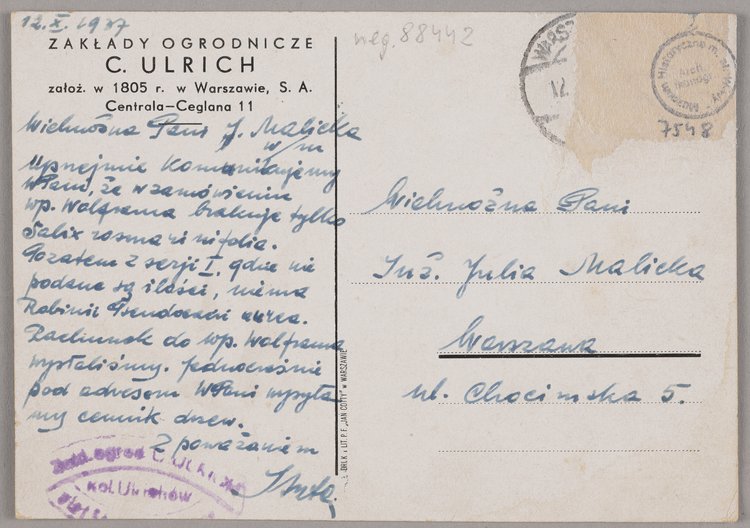 12.X.1937
ZAKŁADY OGRODNICZE
C. ULRICH
założ. w 1805 r. w Warszawie, S. A.
Centrala—Ceglana 11
Wielmożna Pani J. Malicka
w/m
Uprzejmie komunikujemy
WPani, że w zamówieniu
wp. Wolframa brakuje tylko
Salix rosmarinifolia.
Pozatem z serji I, gdzie nie
podane są ilości, niema
Robinii Pseudoacaci aurea.
Rachunek do wp. Wolframa
wysłaliśmy. Jednocześnie
pod adresem WPani wysyła-
my cennik drzew.
Z poważaniem
Zakł. ogrod. C. Ulrich
kol. Ulrichów
neg. 88442
WARSZ
12
Muzeum Historyczne m. st. W-wy
Arch.
Ikonogr.
7548
Wielmożna Pani
Inż. Julia Malicka
Warszawa
ul. Chocimska 5.
DRUK. i LIT. P. F. „JAN COTTY" w WARSZAWIE